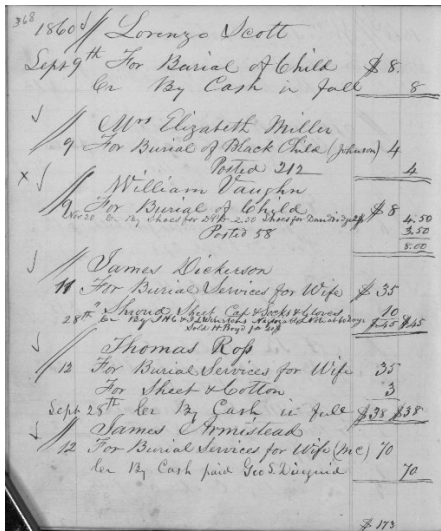 368
1860 Lorenzo Scott
Sept 9th For Burial of Child $ 8.
Cr By Cash in full 8
Mrs Elizabeth Miller
9 For Burial of Black Child (Johnson) 4
Posted 212 4
x William Vaughn
9 For Burial of Child $ 8
Nov 20 Cr By Shoes for D & B 2.50 Shoes for 4.50
3.50
Posted 58 8.00
James Dickerson
11 For Burial Services for Wife $ 35
" Shroud Sheet Cap & Socks & Gloves 10
28th Cr By $45 $45
Sold H Boyd for
Thomas Ross
12 For Burial Services for Wife 35
For Sheet & Cotton 3
Sept 28th Cr By Cash in full $38 $38
James Armistead
12 For Burial Services for Wife (MC) 70
Cr By Cash paid Geo S. Diuguid 70
$ 173